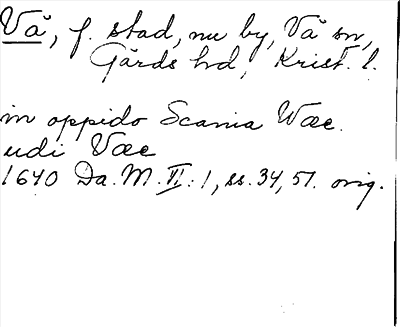 Vä, f. stad, nu by, Vä sn,
Gärds hd, Krist. l.
in oppido Scania Wæ.
udi Væe
1640 Da. M. VI: 1, ss. 34, 51. orig.